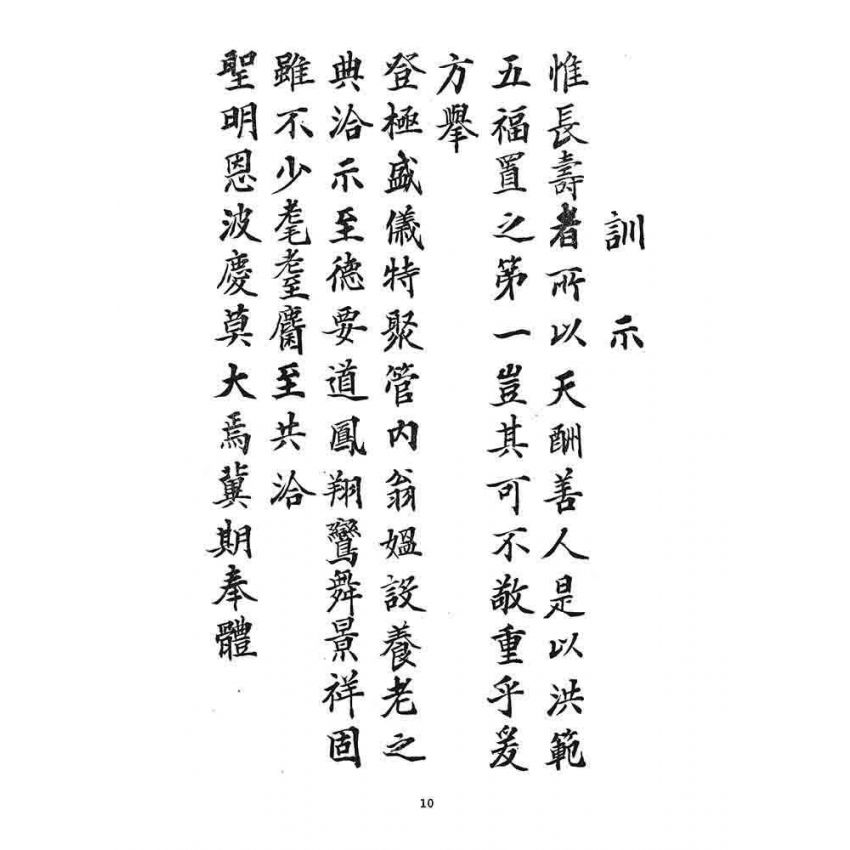 訓示
惟長壽者所以天酬善人是以洪範
五福置之第一豈其可不敬重乎爰
方擧
登極盛儀特聚管内翁媼設養老之
典洽示至德要道鳳翔鸞舞景祥固
雖不少耄耋麕至共洽
聖明恩波慶莫大焉冀期奉體
10